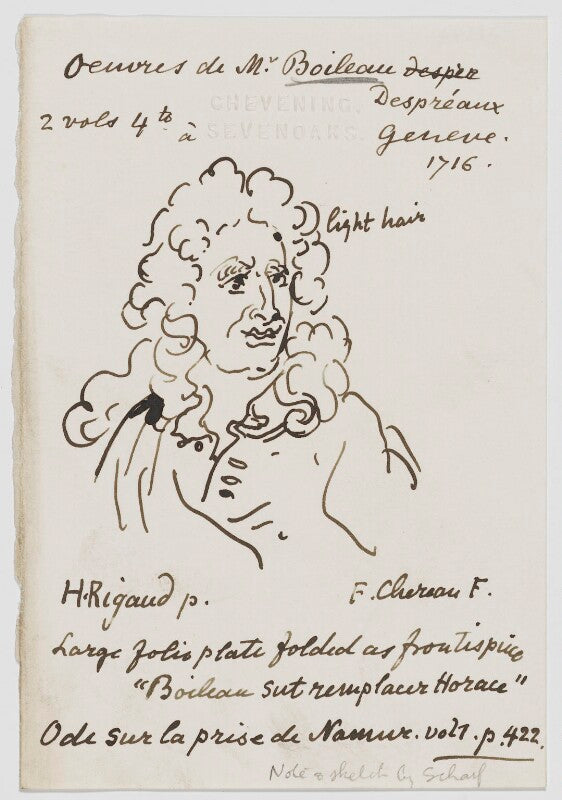 Oeuvres de Mr. Boileau Despér
Despréaux
CHEVENING.
SEVENOAKS.
2 vols 4to à Geneve.
1716.
light hair
H. Rigaud p. F. Chereau F.
Large folio plate folded as frontispiece
"Boileau sut remplacer Horace"
Ode sur la prise de Namur. vol 1. p. 422.
Note & sketch by Scharf